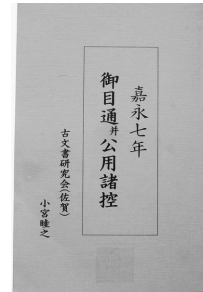 嘉永七年
御目通并公用諸控
古文書研究会(佐賀)
小宮睦之